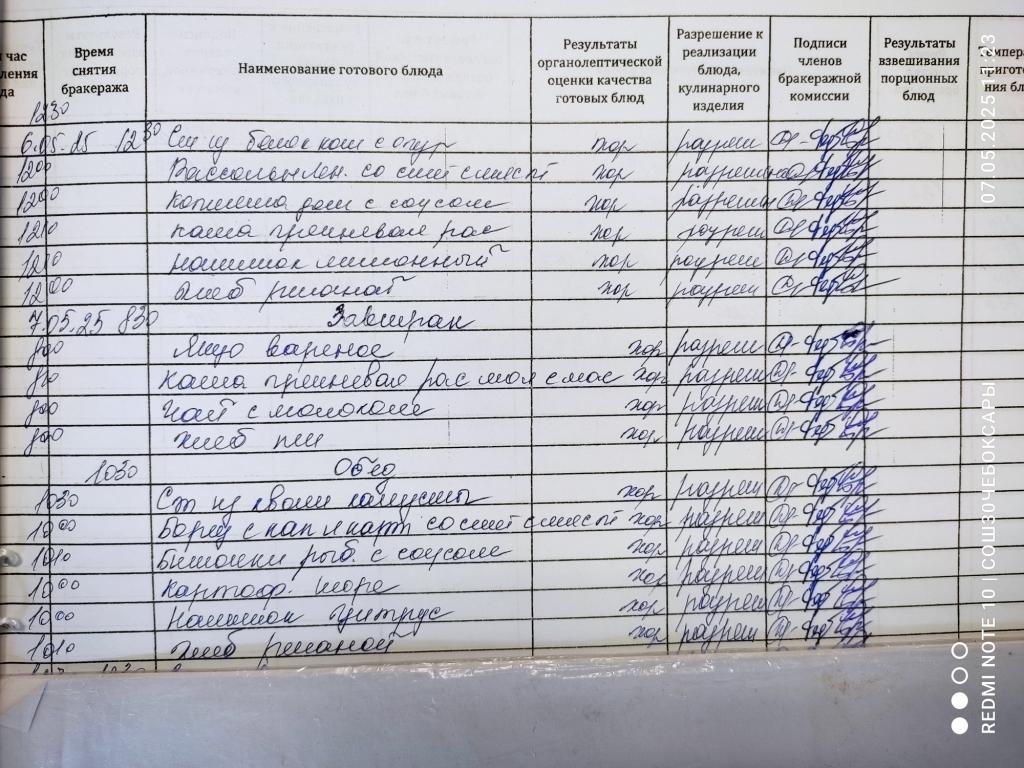 час
ления
да
Время снятия бракеража
Наименование готового блюда
Результаты органолептической оценки качества готовых блюд
Разрешение к реализации блюда, кулинарного изделия
Подписи членов бракеражной комиссии
Результаты взвешивания порционных блюд
емпера
риготов
ния бл
12 30
6.05.25 12 30 Сал из белок кап с огур хор разреш
12 00 Рассольн Лен. со смет с мяс хор разрешено
12 00 с соусом хор разрешен
12 10 каша гречневая рас хор разреш
12 10 напиток лимонный хор разреш
12 00 хлеб ржаной хор разреш
7.05.25 8 30 Завтрак
8 00 Яйцо вареное хор разреш
8 10 каша гречневая рас мол с мас хор разреш
8 00 чай с молоком хор разреш
8 00 хлеб пш хор разреш
10 30 Обед
10 30 из кваш капусты хор разреш
10 00 Борщ с кап и карт со смет с мяс хор разреш
10 10 Биточки рыб. с соусом хор разреш
10 00 Картоф. пюре хор разреш
10 00 Напиток цитрус хор разреш
10 10 хлеб ржаной хор разреш
07.05.2025 11:23
REDMI NOTE 10 | СОШ30ЧЕБОКСАРЫ